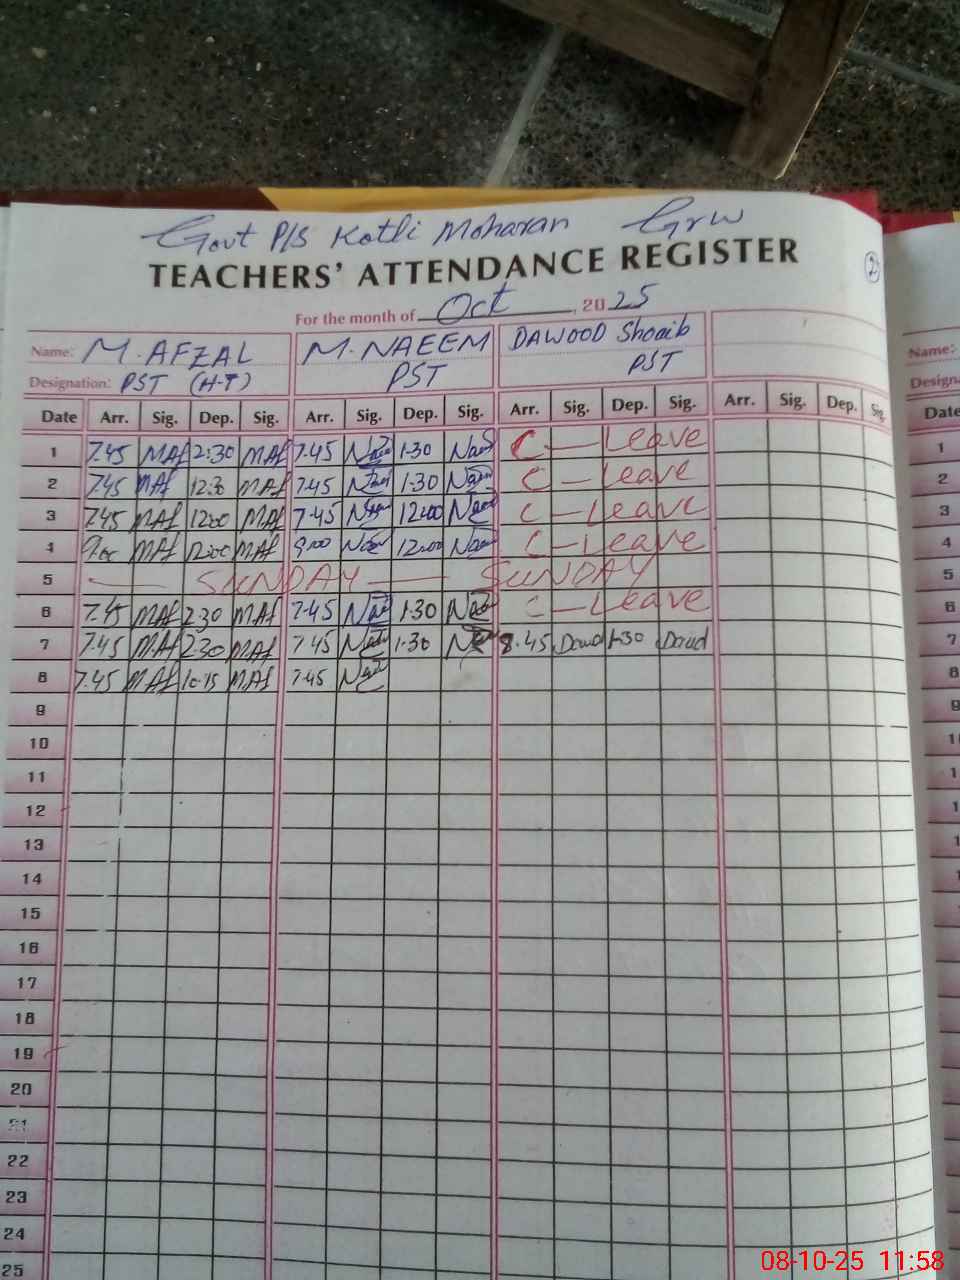 Govt P/S Kotli Moharan Grw
TEACHERS' ATTENDANCE REGISTER
2
For the month of Oct, 2025
Name: M. AFZAL M. NAEEM DAWOOD Shoaib Name:
Designation: PST (H-T) PST PST
Date Arr. Sig. Dep. Sig. Arr. Sig. Dep. Sig. Arr. Sig. Dep. Sig. Arr. Sig. Dep. Sig. Date
1 7.45 MAf 2:30 MAf 7.45 1.30 C - Leave 1
2 7.45 MAf MAf 7.45 1.30 C - Leave 2
3 7.45 MAf 1200 MAf 7.45 1200 C - Leave 3
4 9.00 MAf 12:00 MAf 9.00 12:00 C - Leave 4
5 SUNDAY SUNDAY 5
6 7.45 MAf 2:30 MAf 7.45 1.30 C - Leave 6
7 7.45 MAf 2:30 MAf 7.45 1.30 8.45 Dawd 1.30 Dawd 7
8 7.45 MAf 10.15 MAf 7.45 8
9 9
10
11
12
13
14
15
16
17
18
19
20
21
22
23
24
25
08-10-25 11:58